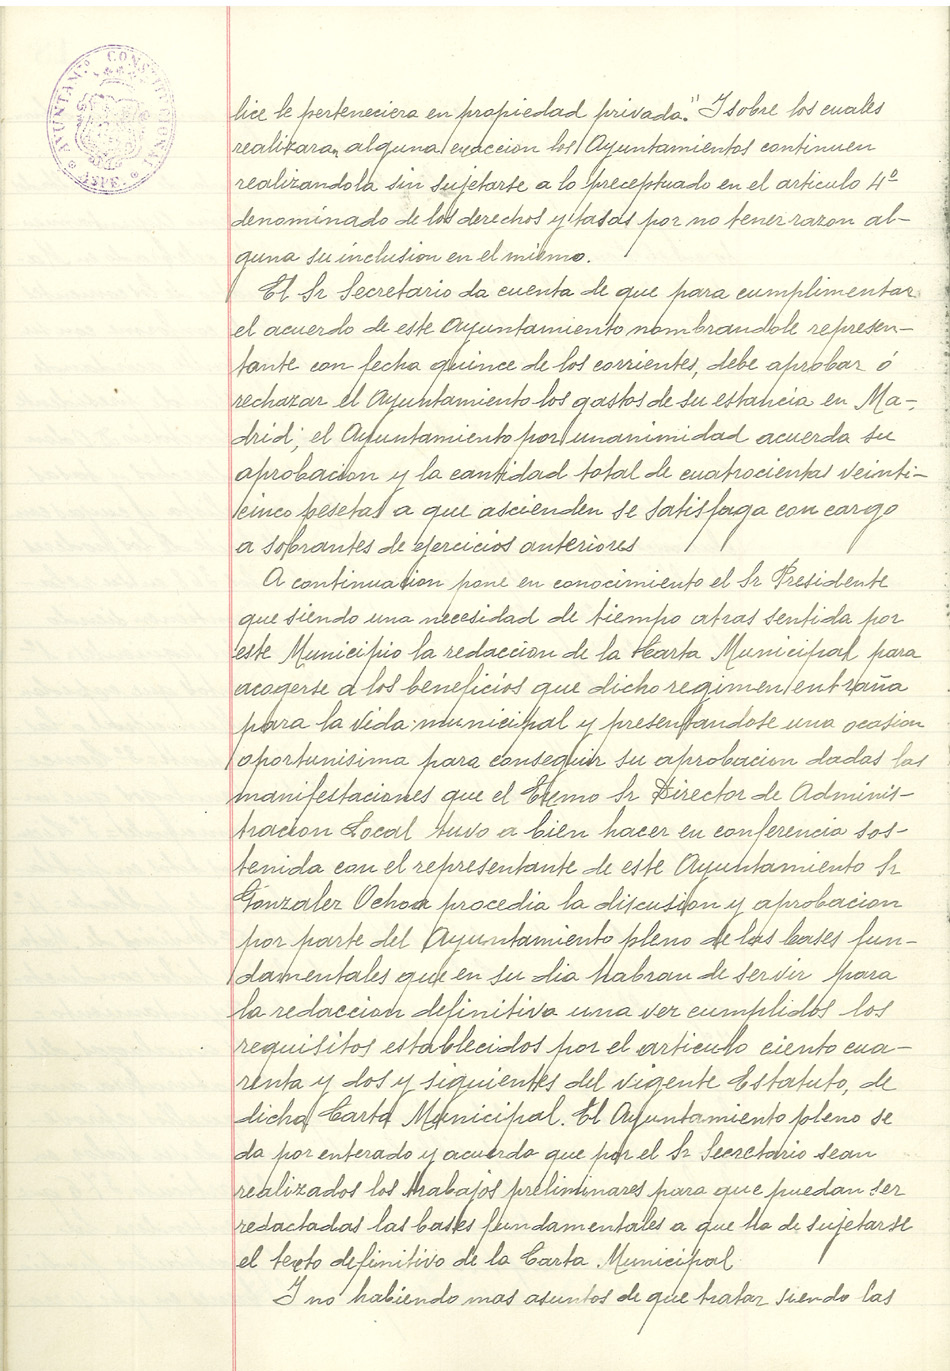 AYUNTAMTO CONSTITUCIONAL
lice le perteneciera en propiedad privada." I sobre los cuales
realizaran alguna exaccion los Ayuntamientos continuen
realizandola sin sujetarse a lo preceptuado en el articulo 4º
denominado de los derechos y tasas por no tener razon al-
guna su inclusion en el mismo.
El Sr Secretario da cuenta de que para cumplimentar
el acuerdo de este Ayuntamiento nombrandole represen-
tante con fecha quince de los corrientes, debe aprobar ó
rechazar el Ayuntamiento los gastos de su estancia en Ma-
drid; el Ayuntamiento por unanimidad acuerda su
aprobacion y la cantidad total de cuatrocientas veinti-
cinco pesetas a que ascienden se satisfaga con cargo
a sobrantes de ejercicios anteriores
A continuacion pone en conocimiento el Sr Presidente
que siendo una necesidad de tiempo atras sentida por
este Municipio la redaccion de la Carta Municipal para
acogerse a los beneficios que dicho regimen entraña
para la vida municipal y presentandose una ocasion
oportunisima para conseguir su aprobacion dadas las
manifestaciones que el Exmo Sr Director de Adminis-
tracion Local tuvo a bien hacer en conferencia sos-
tenida con el representante de este Ayuntamiento Sr
Gonzalez Ochoa procedia la discusion y aprobacion
por parte del Ayuntamiento pleno de las bases fun-
damentales que en su dia habran de servir para
la redaccion definitiva una vez cumplidos los
requisitos establecidos por el articulo ciento cua-
renta y dos y siguientes del vigente Estatuto, de
dicha Carta Municipal. El Ayuntamiento pleno se
da por enterado y acuerda que por el Sr Secretario sean
realizados los trabajos preliminares para que puedan ser
redactadas las bases fundamentales a que ha de sujetarse
el texto definitivo de la Carta Municipal
I no habiendo mas asuntos de que tratar siendo las